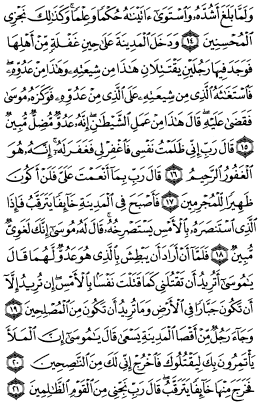 وَلَمَّا بَلَغَ أَشُدَّهُۥ وَٱسْتَوَىٰٓ ءَاتَيْنَٰهُ حُكْمًا وَعِلْمًا ۚ وَكَذَٰلِكَ نَجْزِى
ٱلْمُحْسِنِينَ ١٤ وَدَخَلَ ٱلْمَدِينَةَ عَلَىٰ حِينِ غَفْلَةٍ مِّنْ أَهْلِهَا
فَوَجَدَ فِيهَا رَجُلَيْنِ يَقْتَتِلَانِ هَٰذَا مِن شِيعَتِهِۦ وَهَٰذَا مِنْ عَدُوِّهِۦ ۖ
فَٱسْتَغَٰثَهُ ٱلَّذِى مِن شِيعَتِهِۦ عَلَى ٱلَّذِى مِنْ عَدُوِّهِۦ فَوَكَزَهُۥ مُوسَىٰ
فَقَضَىٰ عَلَيْهِ ۖ قَالَ هَٰذَا مِنْ عَمَلِ ٱلشَّيْطَٰنِ ۖ إِنَّهُۥ عَدُوٌّ مُّضِلٌّ مُّبِينٌ
١٥ قَالَ رَبِّ إِنِّى ظَلَمْتُ نَفْسِى فَٱغْفِرْ لِى فَغَفَرَ لَهُۥٓ ۚ إِنَّهُۥ هُوَ
ٱلْغَفُورُ ٱلرَّحِيمُ ١٦ قَالَ رَبِّ بِمَآ أَنْعَمْتَ عَلَىَّ فَلَنْ أَكُونَ
ظَهِيرًا لِّلْمُجْرِمِينَ ١٧ فَأَصْبَحَ فِى ٱلْمَدِينَةِ خَآئِفًا يَتَرَقَّبُ فَإِذَا
ٱلَّذِى ٱسْتَنصَرَهُۥ بِٱلْأَمْسِ يَسْتَصْرِخُهُۥ ۚ قَالَ لَهُۥ مُوسَىٰٓ إِنَّكَ لَغَوِىٌّ
مُّبِينٌ ١٨ فَلَمَّآ أَنْ أَرَادَ أَن يَبْطِشَ بِٱلَّذِى هُوَ عَدُوٌّ لَّهُمَا قَالَ
يَٰمُوسَىٰٓ أَتُرِيدُ أَن تَقْتُلَنِى كَمَا قَتَلْتَ نَفْسًۢا بِٱلْأَمْسِ ۖ إِن تُرِيدُ إِلَّآ
أَن تَكُونَ جَبَّارًا فِى ٱلْأَرْضِ وَمَا تُرِيدُ أَن تَكُونَ مِنَ ٱلْمُصْلِحِينَ ١٩
وَجَآءَ رَجُلٌ مِّنْ أَقْصَا ٱلْمَدِينَةِ يَسْعَىٰ قَالَ يَٰمُوسَىٰٓ إِنَّ ٱلْمَلَأَ
يَأْتَمِرُونَ بِكَ لِيَقْتُلُوكَ فَٱخْرُجْ إِنِّى لَكَ مِنَ ٱلنَّٰصِحِينَ ٢٠
فَخَرَجَ مِنْهَا خَآئِفًا يَتَرَقَّبُ ۖ قَالَ رَبِّ نَجِّنِى مِنَ ٱلْقَوْمِ ٱلظَّٰلِمِينَ ٢١